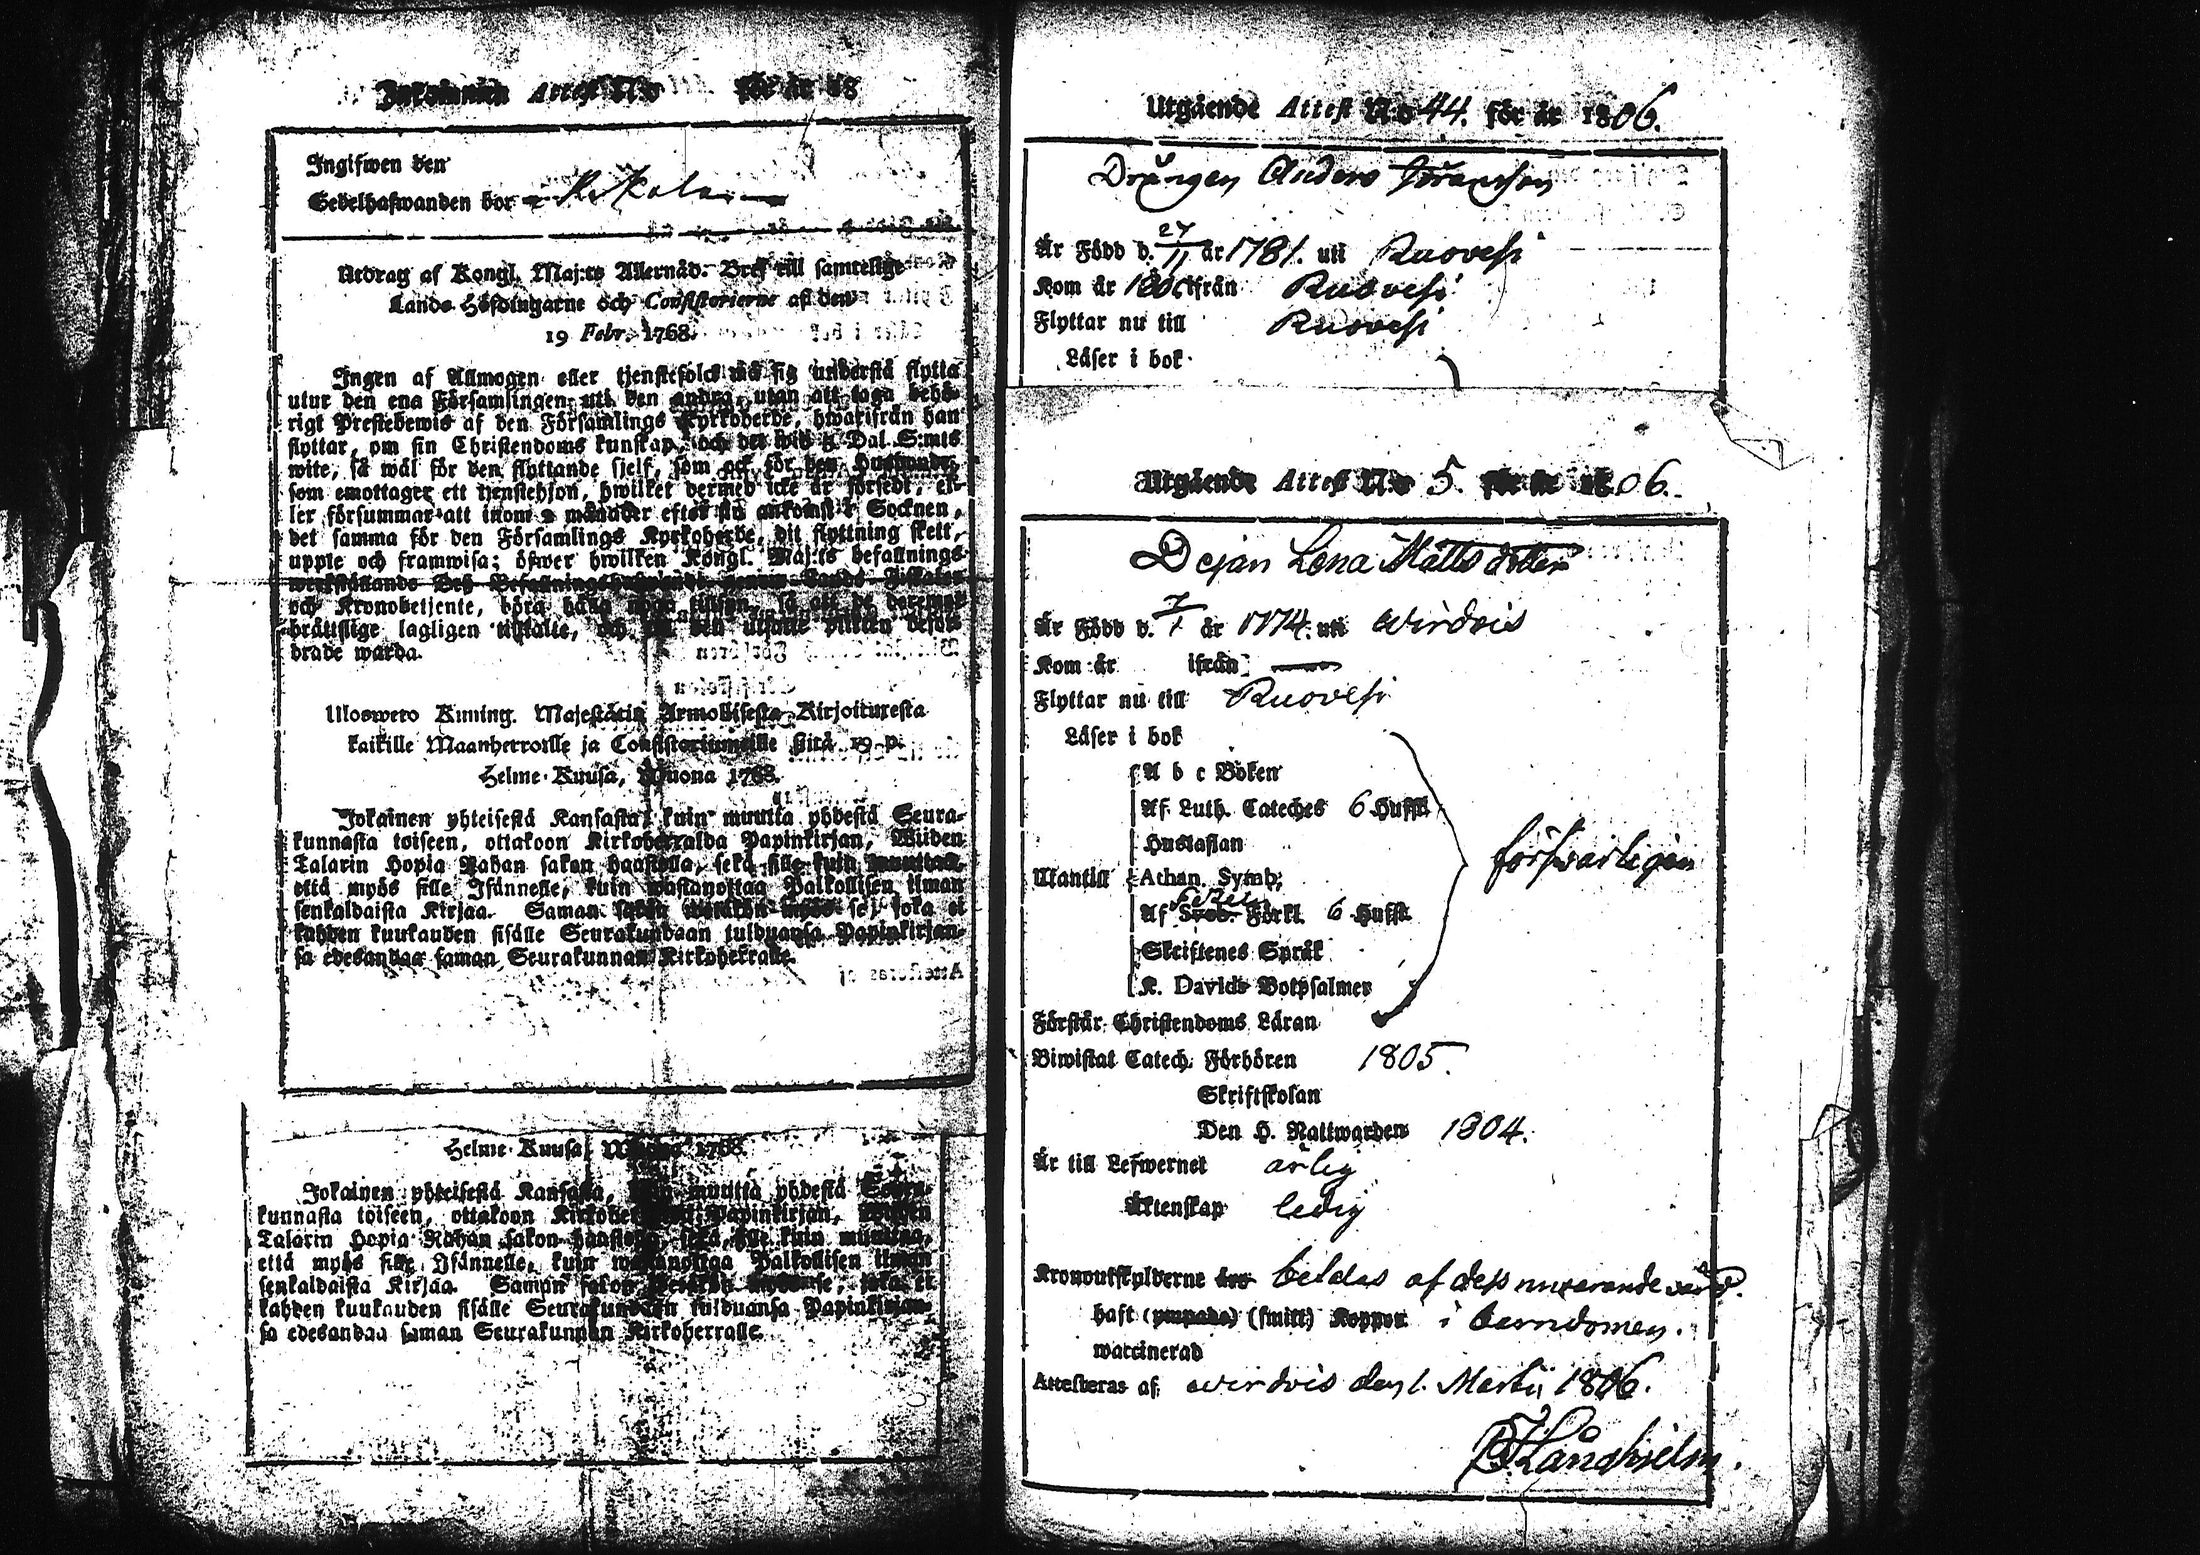 Inkommen Attest N:o för år 18
Ingifwen den
Sedelhafwanden bor
Utdrag af Kongl. Maj:ts Allernåd. Bref till samtelige
Lands-Höfdingarne och Consistorierne af den
19 Febr. 1768.
Ingen af Allmogen eller tjenstefolck må sig understå flytta
utur den ena Församlingen uti den andra, utan att taga behö-
rigt Prestebewis af den Församlings Kyrkoherde, hwarifrån han
flyttar, om sin Christendoms kunskap, och det wid 5 Dal. S:mts
wite, så wäl för den flyttande sjelf, som ock för den Husbonde,
som emottager ett tjenstehjon, hwilket dermed icke är försedt, el-
ler försummar att inom 2 månader efter sin ankomst i Socknen,
det samma för den Församlings Kyrkoherde, dit flyttning skett,
uppte och framwisa; öfwer hwilken Kongl. Maj:ts befallnings
werkställande Deß Befallningshafwande, genom Lands Fiskaler
och Kronobetjente, böra hålla noga tillsyn, så att de deremot
bråttslige lagligen tiltalte, och til den utsatte plikten beför-
drade warda.
Uloswero Kuning. Majestätin Armollisesta Kirjoituxesta
kaikille Maanherroille ja Consistoriumeille siitä 19 p.
Helme-Kuusa, Wuona 1768.
Jokainen yhteisestä Kansasta, kuin muutta yhdestä Seura-
kunnasta toiseen, ottakoon Kirkoherralda Papinkirjan, Wiiden
Talarin Hopia Rahan sakon haastolla, sekä sille kuin muuttaa,
että myös sille Isännelle, kuin wastanottaa Palkollisen ilman
senkaldaista Kirjaa. Saman sakon wetäkön myös se, joka ei
kahden kuukauden sisälle Seurakundaan tulduansa Papinkirjan-
sa edesandaa saman Seurakunnan Kirkoherralle.
Helme-Kuusa, Wuona 1768.
Jokainen yhteisestä Kansasta, kuin muutta yhdestä Seura-
kunnasta toiseen, ottakoon Kirkoherralda Papinkirjan, Wiiden
Talarin Hopia Rahan sakon haastolla, sekä sille kuin muuttaa,
että myös sille Isännelle, kuin wastanottaa Palkollisen ilman
senkaldaista Kirjaa. Saman sakon wetäkön myös se, joka ei
kahden kuukauden sisälle Seurakundaan tulduansa Papinkirjan-
sa edesandaa saman Seurakunnan Kirkoherralle.
Utgående Attest N:o 44. för år 1806.
Drängen Anders Göransson
Är Född d. 27/11 år 1781. uti Ruovesi
Kom år ifrån Ruovesi
Flyttar nu till Ruovesi
Läser i bok
Utgående Attest N:o 5. för år 1806.
Dejan Lena Mattsdotter
Är Född d. 7/1 år 1774. uti Wirdois
Kom år ifrån —
Flyttar nu till Ruovesi
Läser i bok
A b c Boken
Af Luth. Cateches 6 Hufst
Hustaflan
Utantill Athan. Symb;
Af Sveb. Förkl. 6 Hufst.
Skriftenes Språk
K. Davids Botpsalmer
försvarligen
Förstår Christendoms Läran
Biwistat Catech. Förhören 1805.
Skriftskolan
Den H. Nattwarden 1804.
Är till Lefwernet ärlig
Äktenskap ledig
Kronoutskylderne äro betalas af dess nuvarande
haft (ympade) (smitt) Koppor i barndomen.
waccinerad
Attesteras af, Wirdois den 1. Martii 1806.